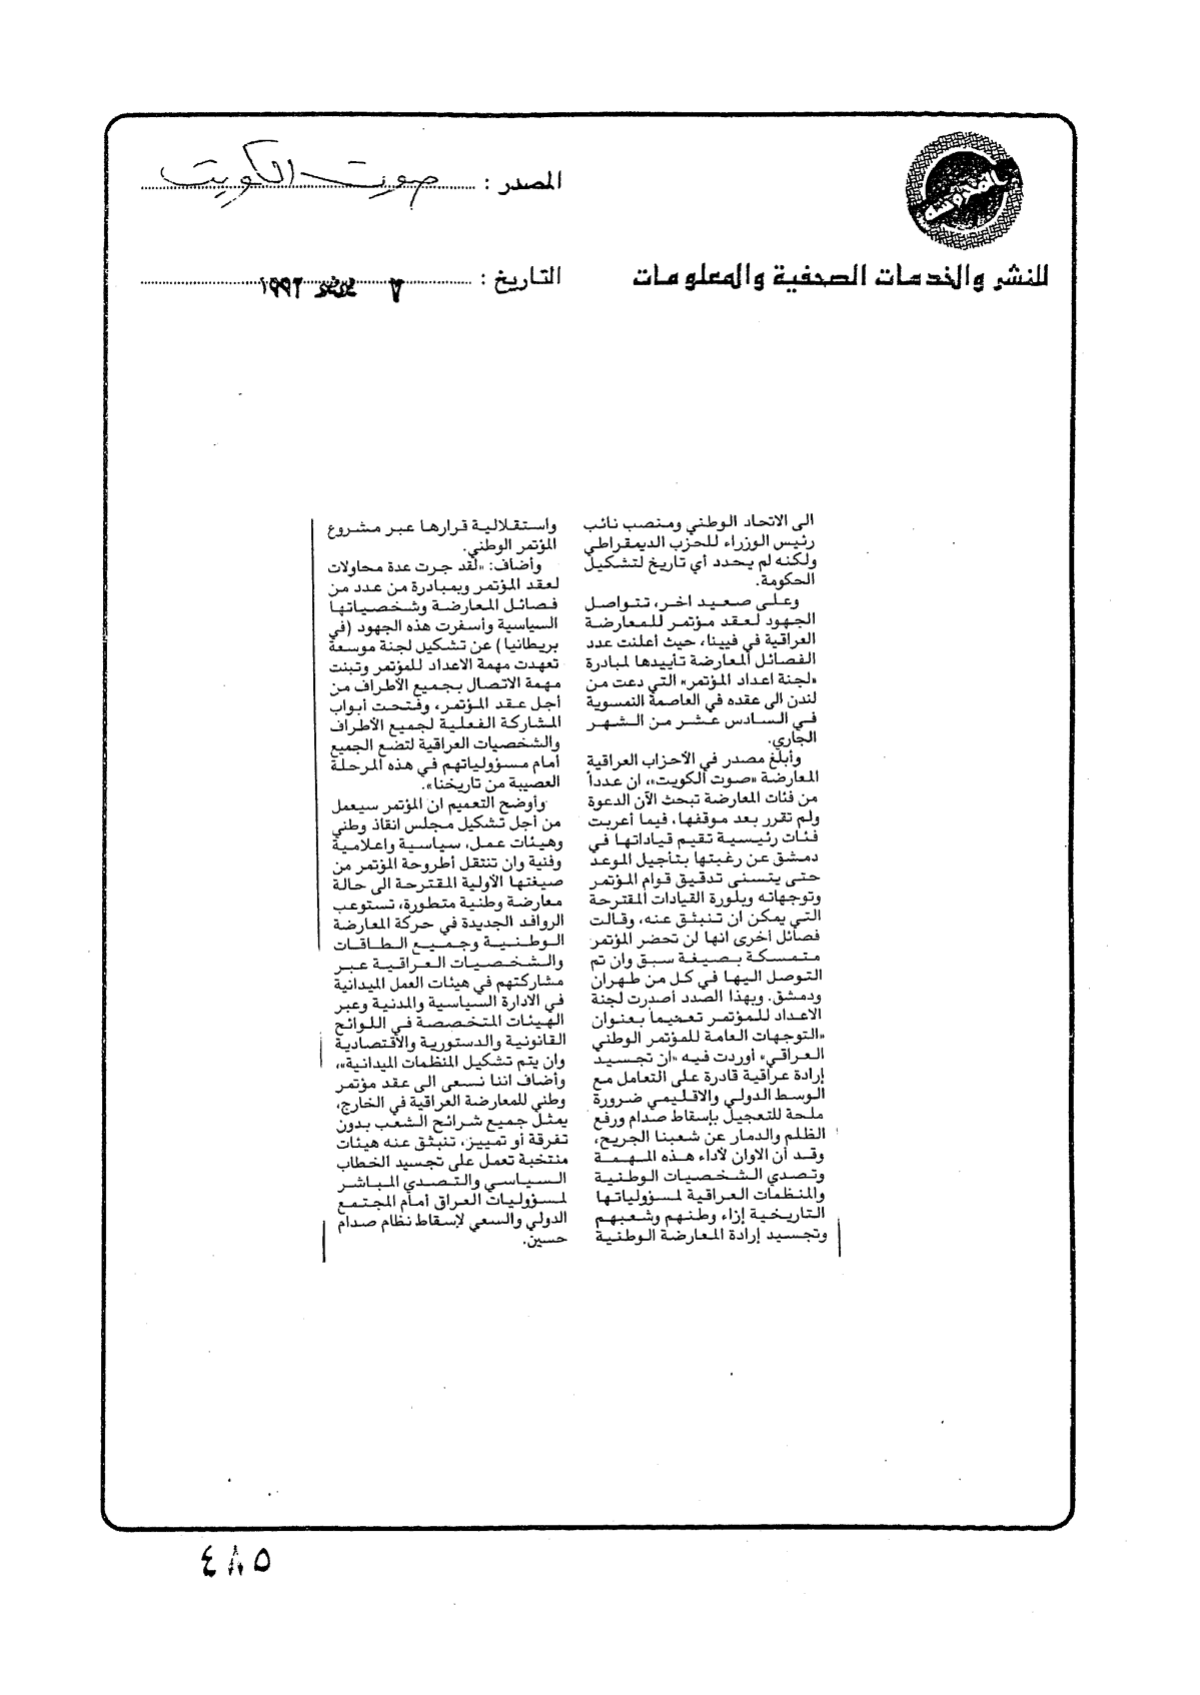 المصدر : صوت الكويت
المحروسة
للنشر والخدمات الصحفية والمعلومات
التاريخ : ١٩٩٢
الى الاتحاد الوطني ومنصب نائب
رئيس الوزراء للحزب الديمقراطي
ولكنه لم يحدد أي تاريخ لتشكيل
الحكومة.
وعلى صعيد اخر، تتواصل
الجهود لعقد مؤتمر للمعارضة
العراقية في فيينا، حيث أعلنت عدد
الفصائل المعارضة تأييدها لمبادرة
«لجنة اعداد المؤتمر» التي دعت من
لندن الى عقده في العاصمة النمسوية
في السادس عشر من الشهر
الجاري.
وأبلغ مصدر في الأحزاب العراقية
المعارضة «صوت الكويت»، ان عدداً
من فئات المعارضة تبحث الآن الدعوة
ولم تقرر بعد موقفها، فيما أعربت
فئات رئيسية تقيم قياداتها في
دمشق عن رغبتها بتأجيل الموعد
حتى يتسنى تدقيق قوام المؤتمر
وتوجهاته وبلورة القيادات المقترحة
التي يمكن ان تنبثق عنه، وقالت
فصائل أخرى انها لن تحضر المؤتمر
متمسكة بصيغة سبق وان تم
التوصل اليها في كل من طهران
ودمشق. وبهذا الصدد أصدرت لجنة
الاعداد للمؤتمر تعميماً بعنوان
«التوجهات العامة للمؤتمر الوطني
العراقي» أوردت فيه «ان تجسيد
إرادة عراقية قادرة على التعامل مع
الوسط الدولي والاقليمي ضرورة
ملحة للتعجيل بإسقاط صدام ورفع
الظلم والدمار عن شعبنا الجريح،
وقد آن الاوان لأداء هذه المهمة
وتصدي الشخصيات الوطنية
والمنظمات العراقية لمسؤولياتها
التاريخية إزاء وطنهم وشعبهم
وتجسيد إرادة المعارضة الوطنية
واستقلالية قرارها عبر مشروع
المؤتمر الوطني.
وأضاف: «لقد جرت عدة محاولات
لعقد المؤتمر وبمبادرة من عدد من
فصائل المعارضة وشخصياتها
السياسية وأسفرت هذه الجهود (في
بريطانيا) عن تشكيل لجنة موسعة
تعهدت مهمة الاعداد للمؤتمر وتبنت
مهمة الاتصال بجميع الأطراف من
أجل عقد المؤتمر، وفتحت أبواب
المشاركة الفعلية لجميع الأطراف
والشخصيات العراقية لتضع الجميع
أمام مسؤولياتهم في هذه المرحلة
العصيبة من تاريخنا».
وأوضح التعميم ان المؤتمر سيعمل
من أجل تشكيل مجلس انقاذ وطني
وهيئات عمل، سياسية واعلامية
وفنية وان تنتقل أطروحة المؤتمر من
صيغتها الأولية المقترحة الى حالة
معارضة وطنية متطورة، تستوعب
الروافد الجديدة في حركة المعارضة
الوطنية وجميع الطاقات
والشخصيات العراقية عبر
مشاركتهم في هيئات العمل الميدانية
في الادارة السياسية والمدنية وعبر
الهيئات المتخصصة في اللوائح
القانونية والدستورية والاقتصادية
وان يتم تشكيل المنظمات الميدانية»،
وأضاف اننا نسعى الى عقد مؤتمر
وطني للمعارضة العراقية في الخارج،
يمثل جميع شرائح الشعب بدون
تفرقة أو تمييز، تنبثق عنه هيئات
منتخبة تعمل على تجسيد الخطاب
السياسي والتصدي المباشر
لمسؤوليات العراق أمام المجتمع
الدولي والسعي لإسقاط نظام صدام
حسين.
٤٨٥